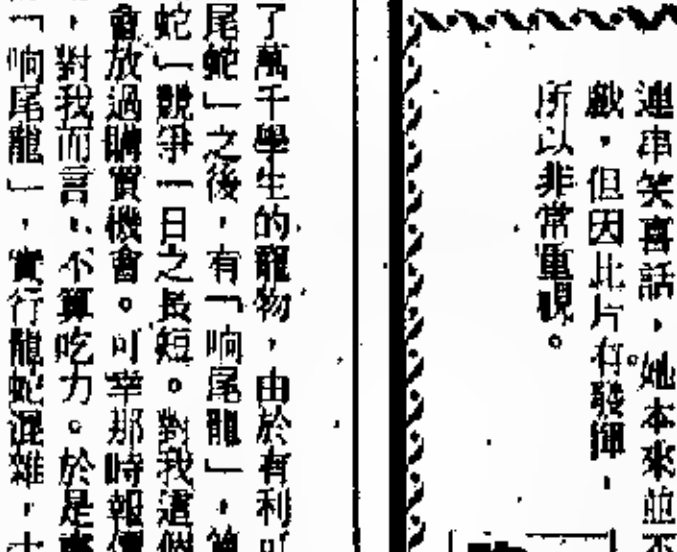 連串笑喜話，她本來並不
戲，但因此片有發揮，
所以非常重視。
了萬千學生的寵物，由於有利可
尾蛇」之後，有「响尾龍」，
蛇」競爭一日之長短。對我這個
會放過購買機會。可幸那時報價
，對我而言，不算吃力。於是
「响尾龍」，實行龍蛇混雜，